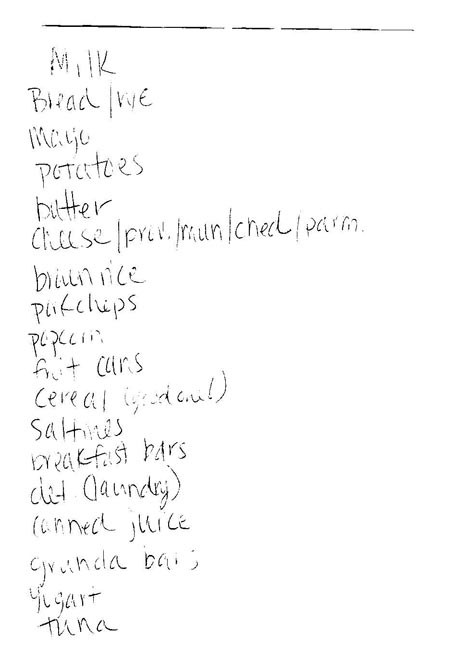 Milk
Bread/rye
Mayo
potatoes
butter
cheese/prov./mun/ched/parm.
brown rice
porkchips
popcorn
fruit cans
cereal (good one!)
Saltines
breakfast bars
det (laundry)
canned juice
granola bars
yugart
tuna